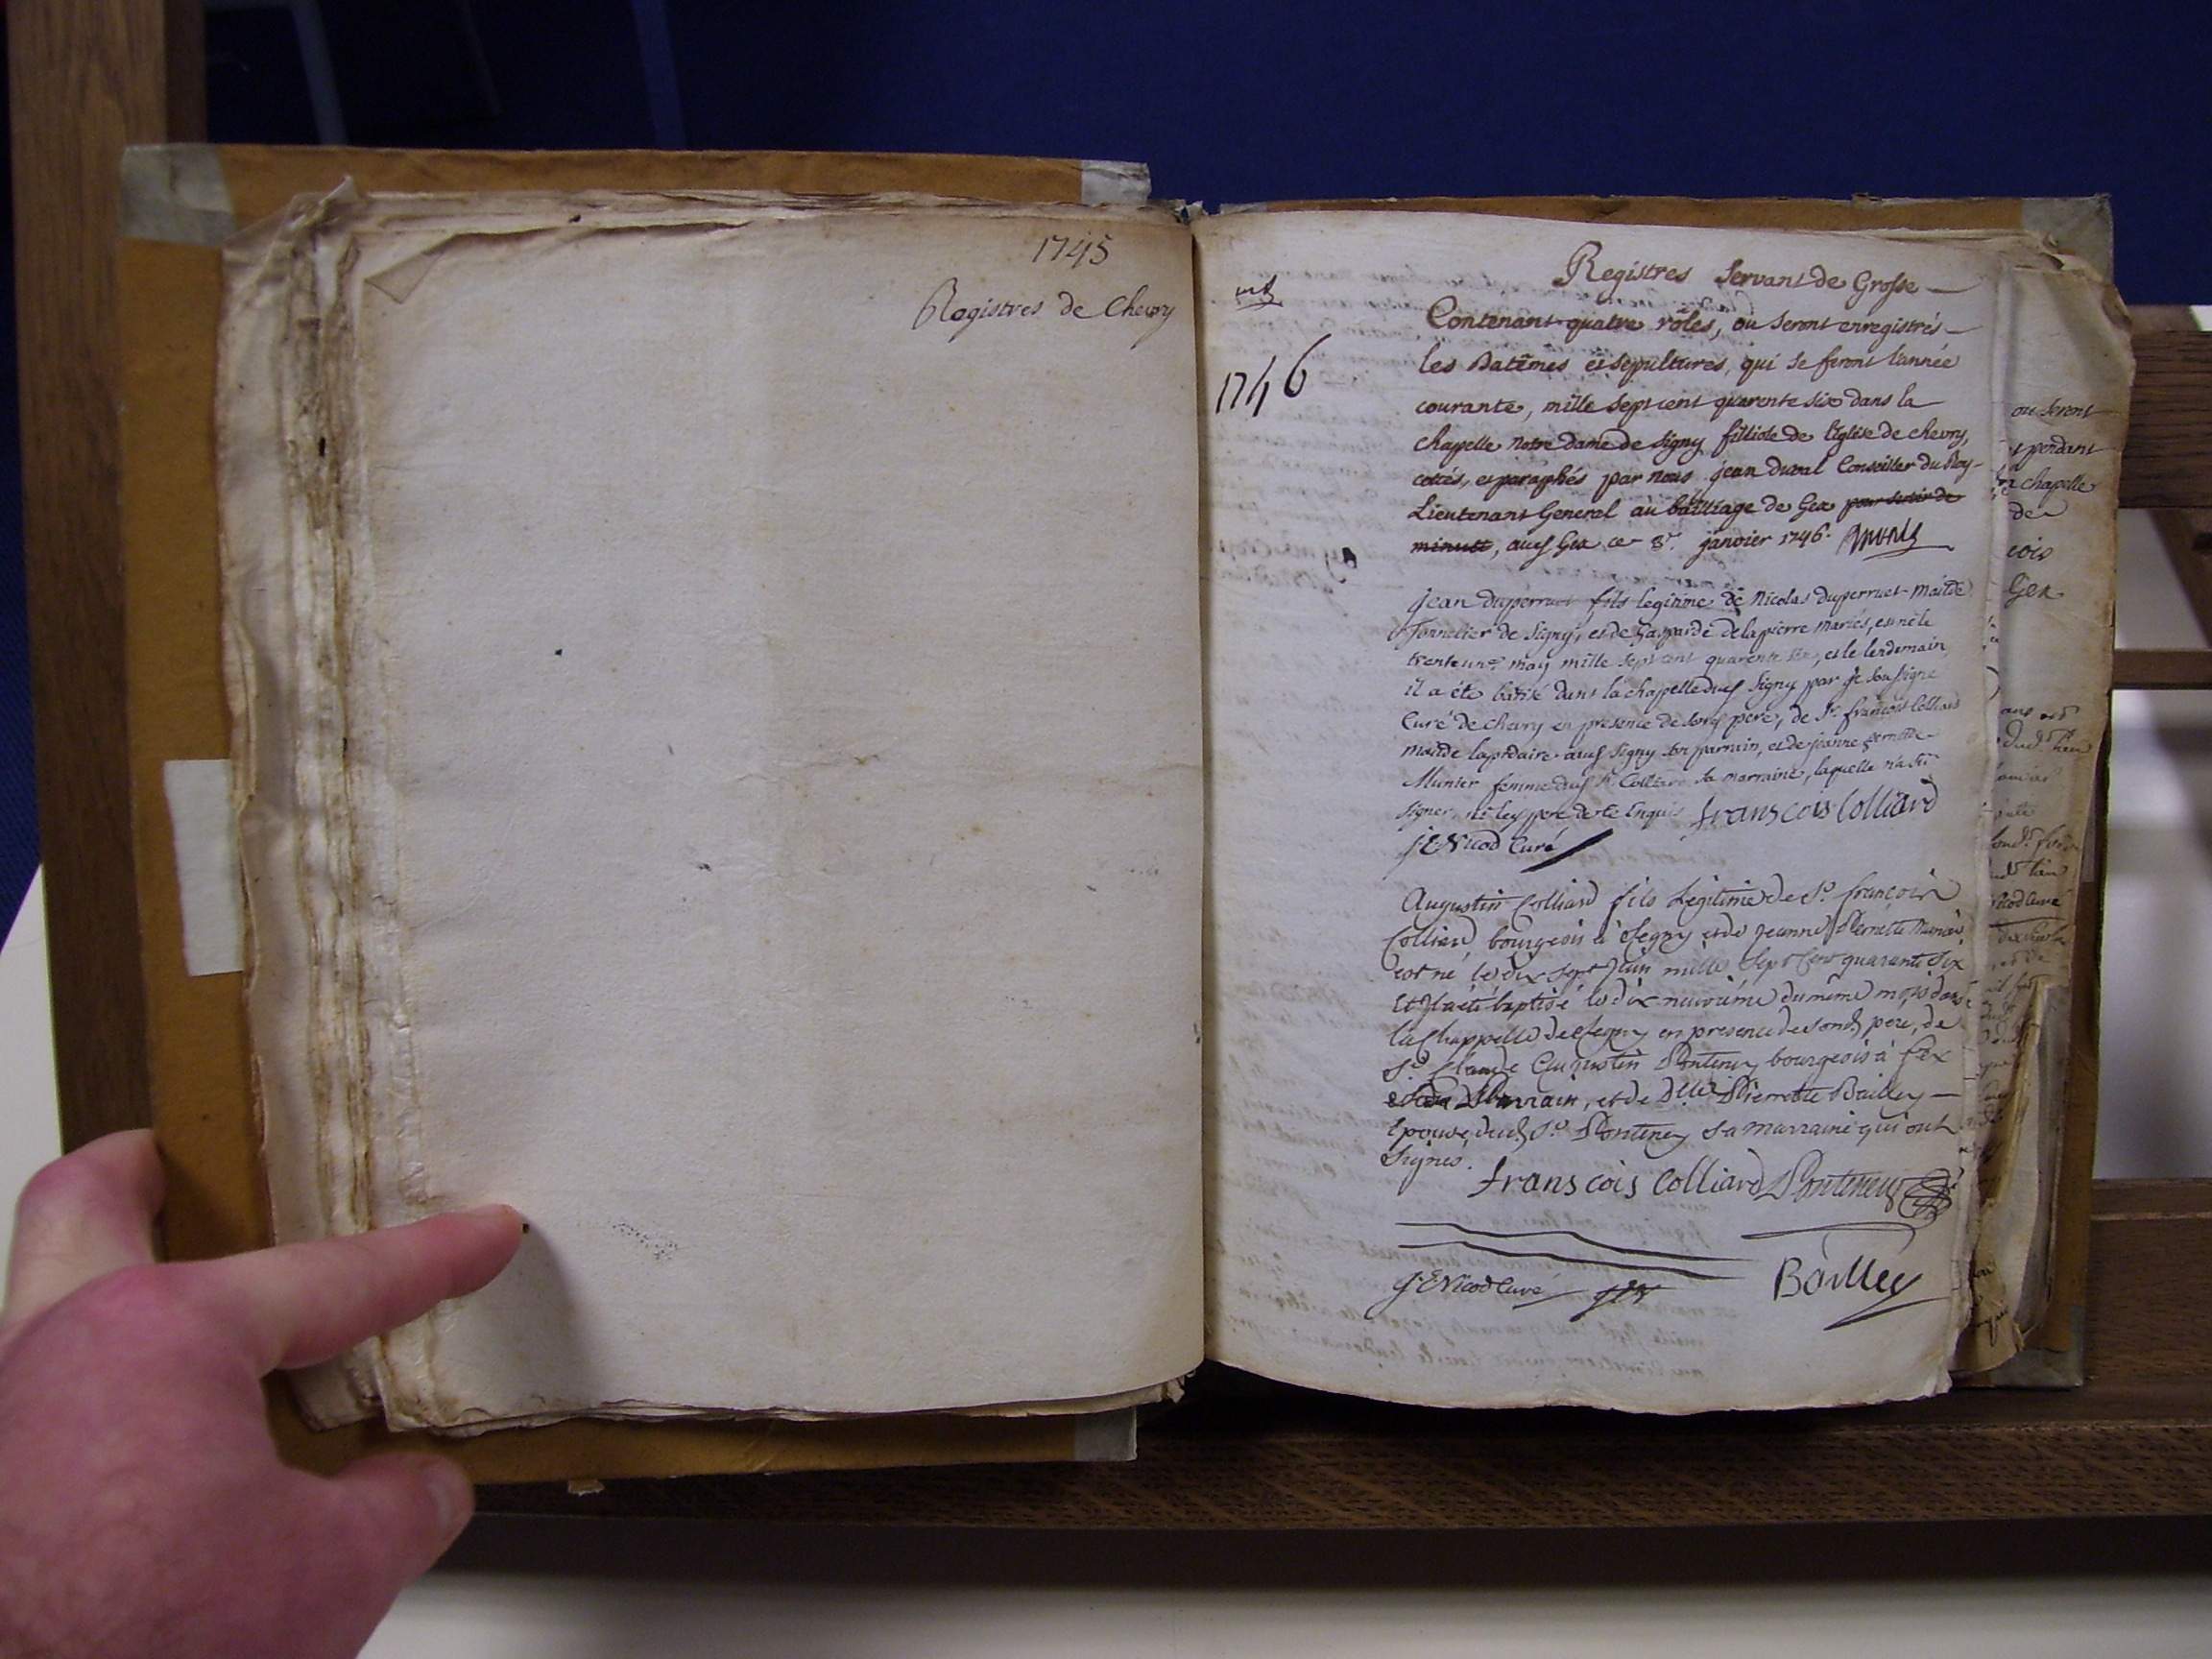 1745
Registres de Chevry
1746
Registres Servant de Grosse
Contenant quatre rôles, ou seront enregistrés
les Batêmes et sepultures, qui se feront l'année
courante, mille sept cent quarente six dans la
chapelle notre dame de signy filliole de l'Eglise de chevry,
cottés, et paraphés par nous jean duval Conseiller du Roy
Lieutenant General au bailliage de Gex pour servir de
minute, aud Gex ce 8e janvier 1746.
jean duperruet fils legitime de Nicolas duperruet maitre
Tonnelier de Signy, et de Gasparde delapierre mariés, est né le
trente un may mille sept cent quarente six, et le lendemain
il a été batisé dans la chapelle dud Signy par je soussigné
Curé de chevry en presence de sond pere, de Sr françois Colliard
maitre lapidaire aud Signy son parrain, et de jeanne pernette
Munier femme dud Sr Colliard sa marraine, laquelle n'a sû
signer, ni led pere de ce enquis franscois Colliard
J E Nicod Curé
Augustin Colliard fils Légitime de Sr françois
Colliard bourgeois à Segny et de jeanne Pernette Munier
est né le dix sept Juin mille sept cent quarante six
et Il a été baptisé le dix neuvième du même mois dans
la Chappelle de Segny en presence de sond pere, de
Sr Claude Augustin Ponteney bourgeois à Gex
Parrain, et de Dlle Pierrette Bailley
épouse dud Sr Ponteney sa marraine qui ont
signés.
franscois Colliard Ponteney
J E Nicod Curé
Bailley
ou seront
pendant
la chapelle
de
Gex